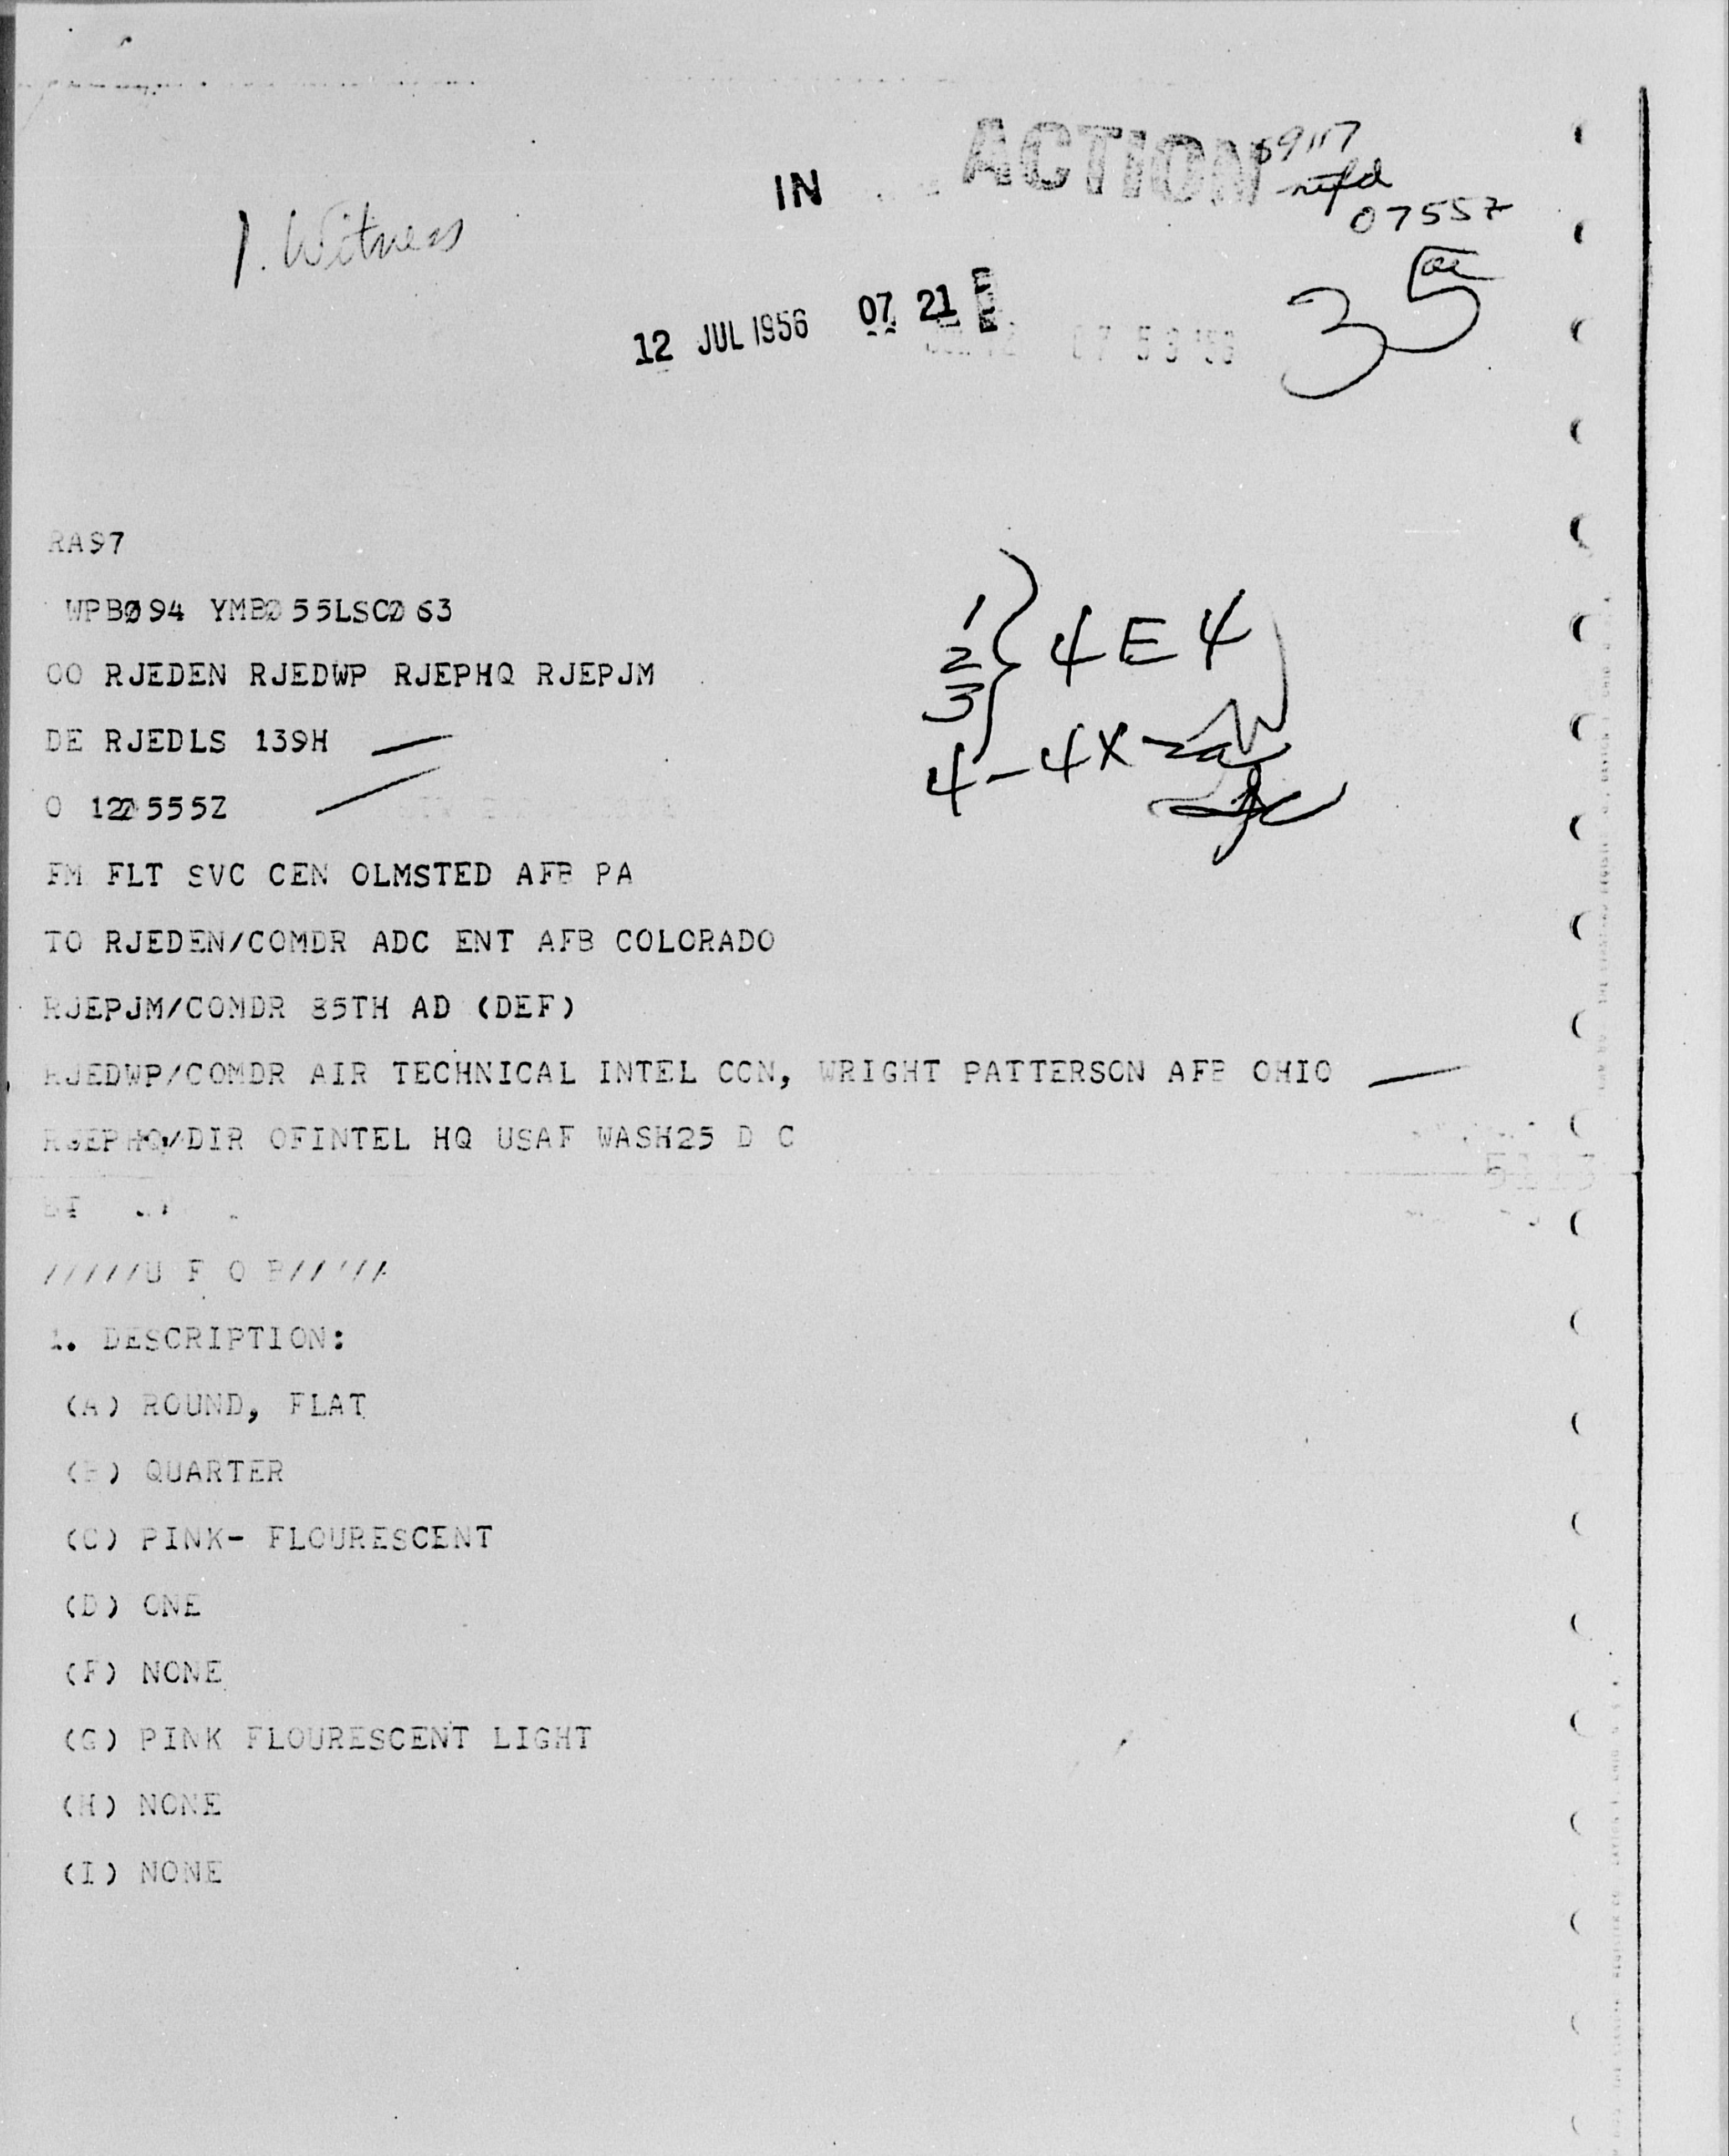 IN ACTION
nifd
0755Z
1. Witness
12 JUL 1956 07 21
35
RA97
WPBØ94 YMBØ55LSCØ63
OO RJEDEN RJEDWP RJEPHQ RJEPJM
DE RJEDLS 139H
O 12Ø555Z
FM FLT SVC CEN OLMSTED AFB PA
TO RJEDEN/COMDR ADC ENT AFB COLORADO
RJEPJM/COMDR 85TH AD (DEF)
RJEDWP/COMDR AIR TECHNICAL INTEL CCN, WRIGHT PATTERSON AFB OHIO
RJEPHQ/DIR OFINTEL HQ USAF WASH25 D C
/////U F O B/////
1. DESCRIPTION:
(A) ROUND, FLAT
(B) QUARTER
(C) PINK- FLOURESCENT
(D) ONE
(F) NONE
(G) PINK FLOURESCENT LIGHT
(H) NONE
(I) NONE
1
2 4E4
3
4-4X